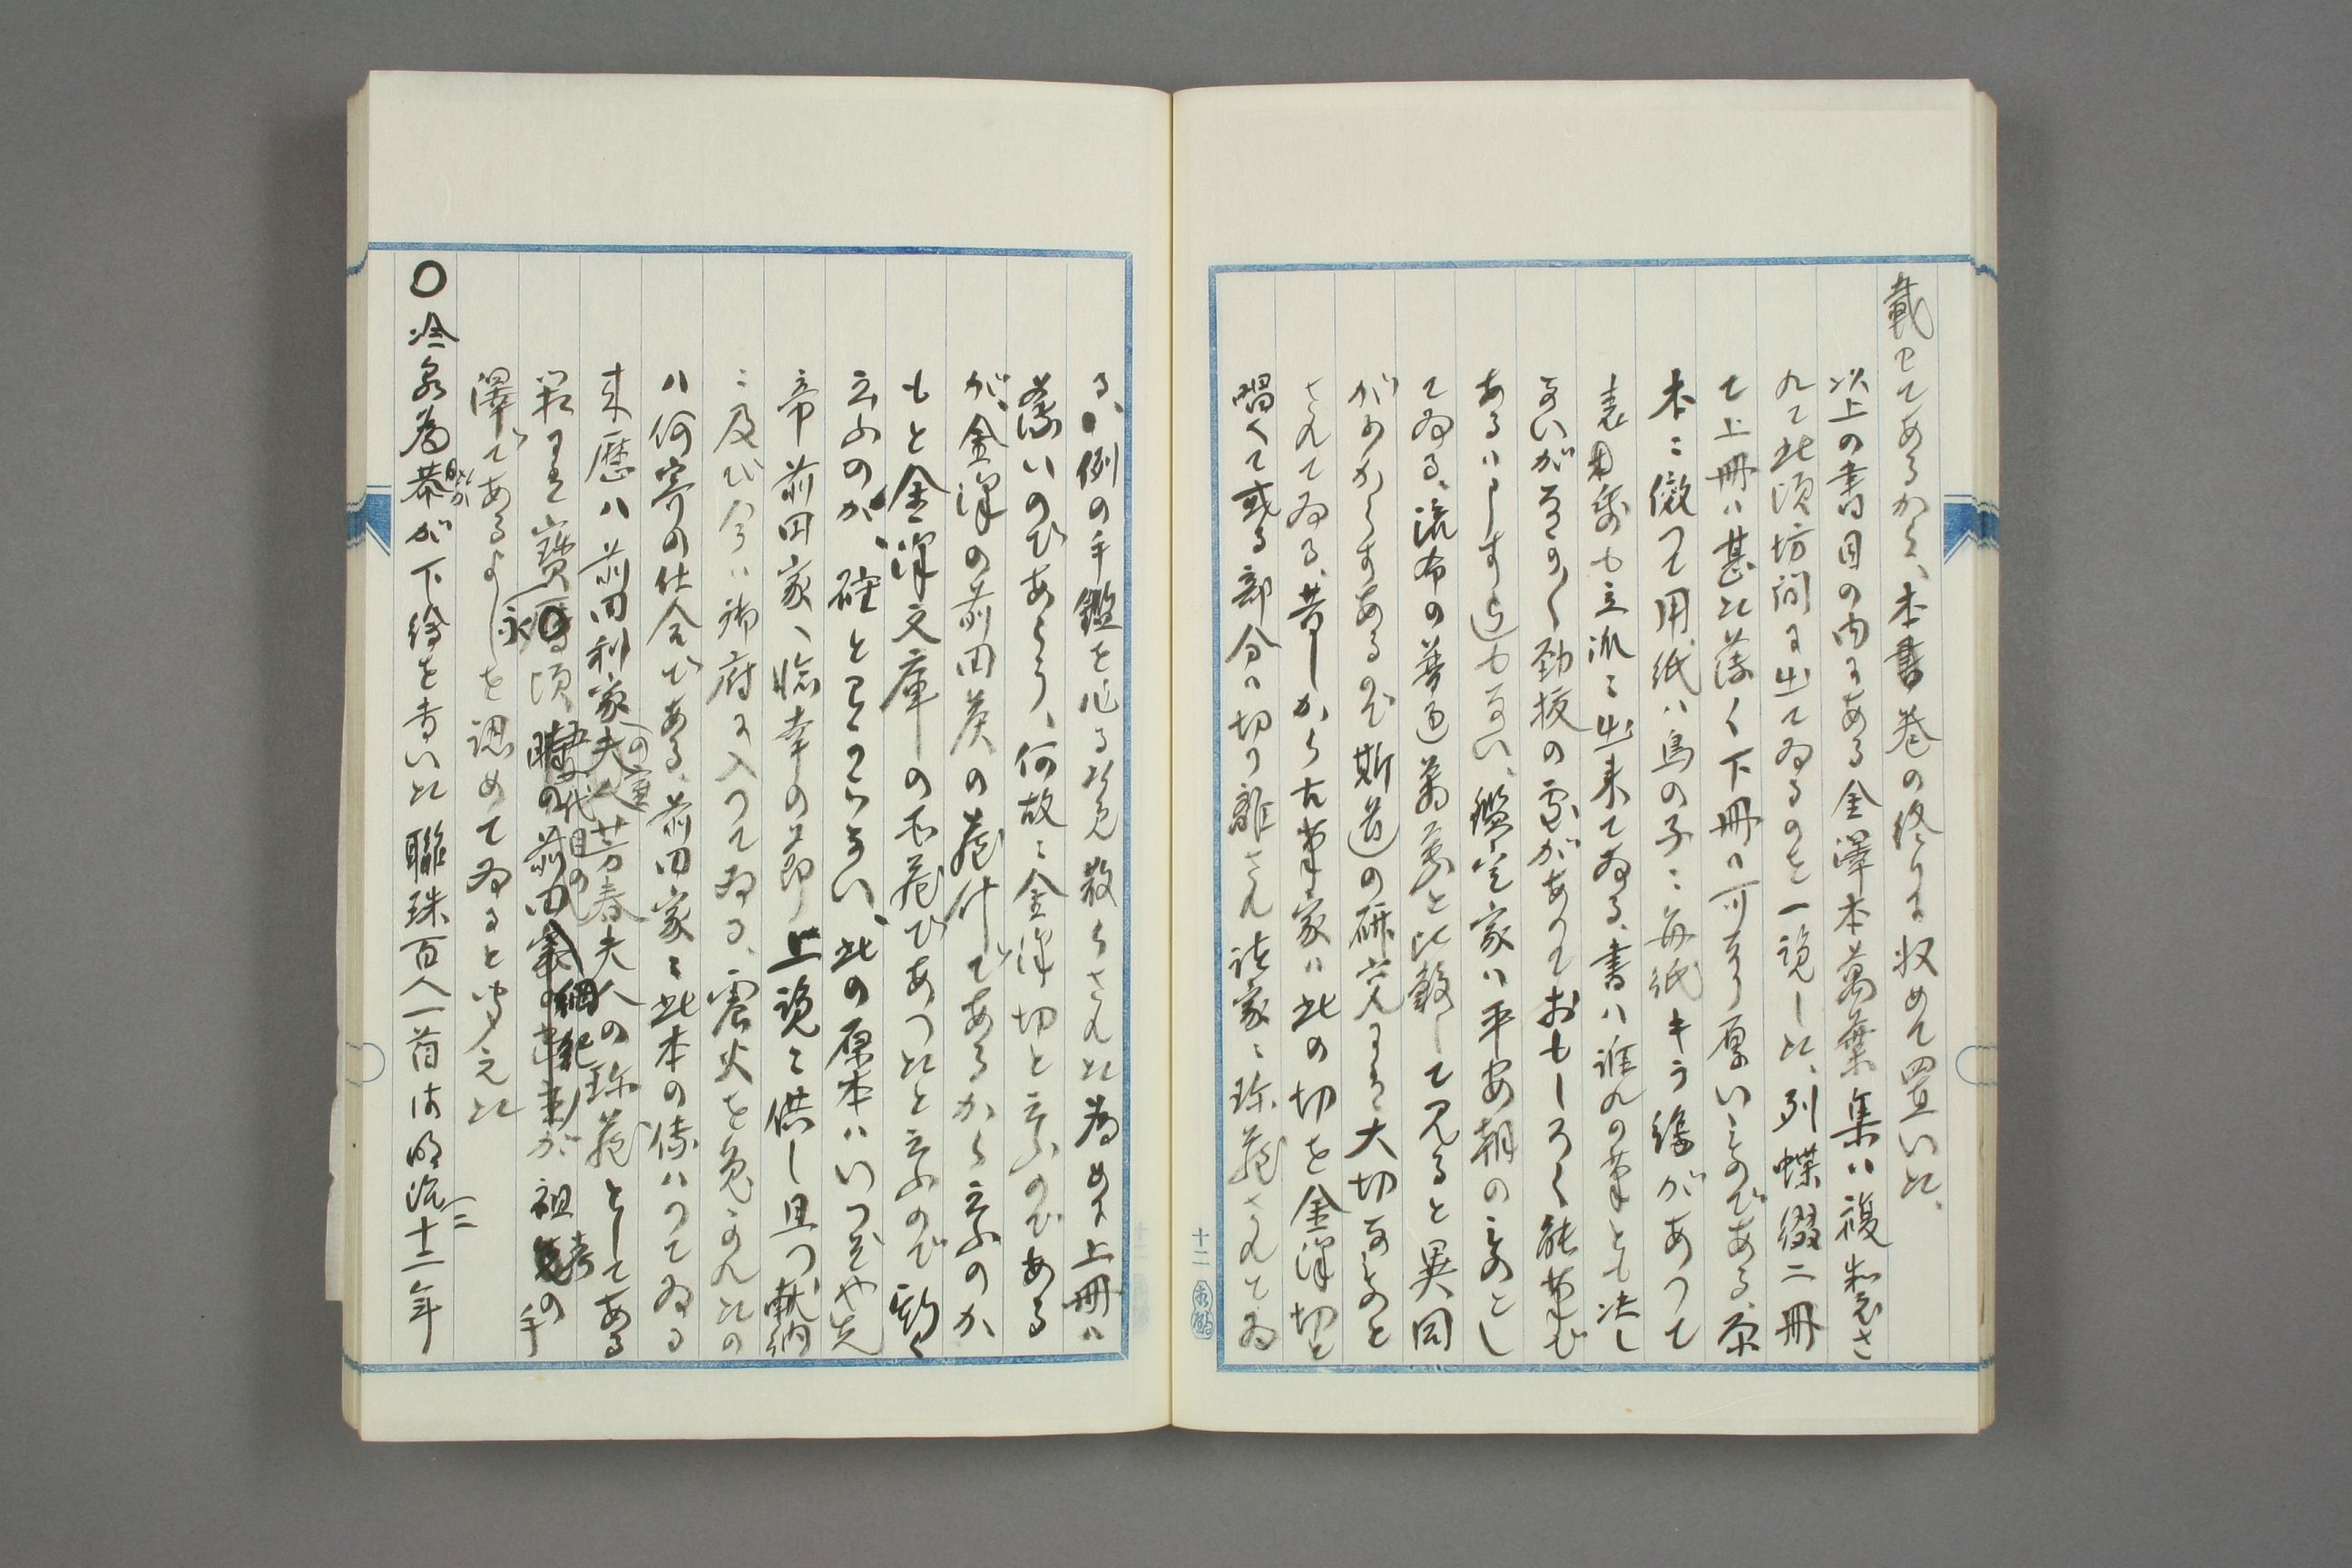 載してあるから、本書巻の終りに収めて置いた。
以上の書目の内にある金澤本萬葉集ハ複製さ
れて此頃坊間に出てゐるのを一覧した、列蝶綴二冊
て上冊ハ甚た薄く下冊ハ可なり厚いものである、原
本ニ倣つて用紙ハ鳥の子ニ毎紙キラ線があつて
表も立派ニ出来てゐる、書ハ誰れの筆とも决し
ないがなか〳〵勁抜の處があつておもしろく能筆で
あるハ申す迄もない、鑑定家ハ平安朝のものとし
てゐる、流布の普通萬葉と比較して見ると異同
が少からすあるので斯道の研究には大切なものと
されてゐる、昔しから古筆家ハ此の切を金澤切と
唱へて或る部分ハ切り離され諸家ニ珍蔵されてゐ
る、例の手鑑を作る時免散らされた為め上冊ハ
薄いのであらう、何故ニ金澤切と云ふのである
が、金澤の前田侯の蔵什であるから云ふのか
もと金澤文庫の本蔵であつたと云ふので斯く
云ふのか、確と分らない、此の原本ハいつぞや先
帝前田家へ臨幸の節上覧ニ供し且つ献納
ニ及び今ハ御府に入つてゐる、震火を免かれたの
ハ何寄の仕合である、前田家ニ此本の傳ハつてゐる
来歴ハ前田利家の室芳春夫人の珍蔵としてある
箱に寶永頃五代目の前田綱紀が祖考の手
澤であるよしを認めてゐると聞えた
〇冷泉為恭が下絵を書いた聯珠百人一首は明治十二年
十二